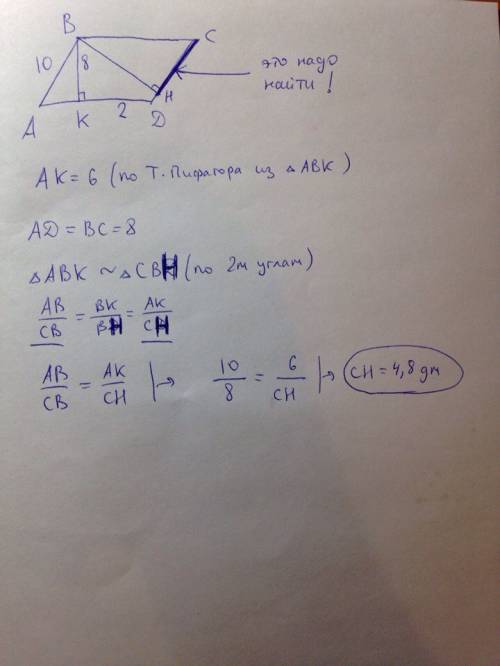 B
C
10
8
это надо
найти!
H
A
K
2
D
AK = 6 (по Т. Пифагора из △ ABK)
AD = BC = 8
△ABK ~ △CBH (по 2м углам)
AB/CB = BK/BH = AK/CH
AB/CB = AK/CH |→ 10/8 = 6/CH |→ CH = 4,8 дм